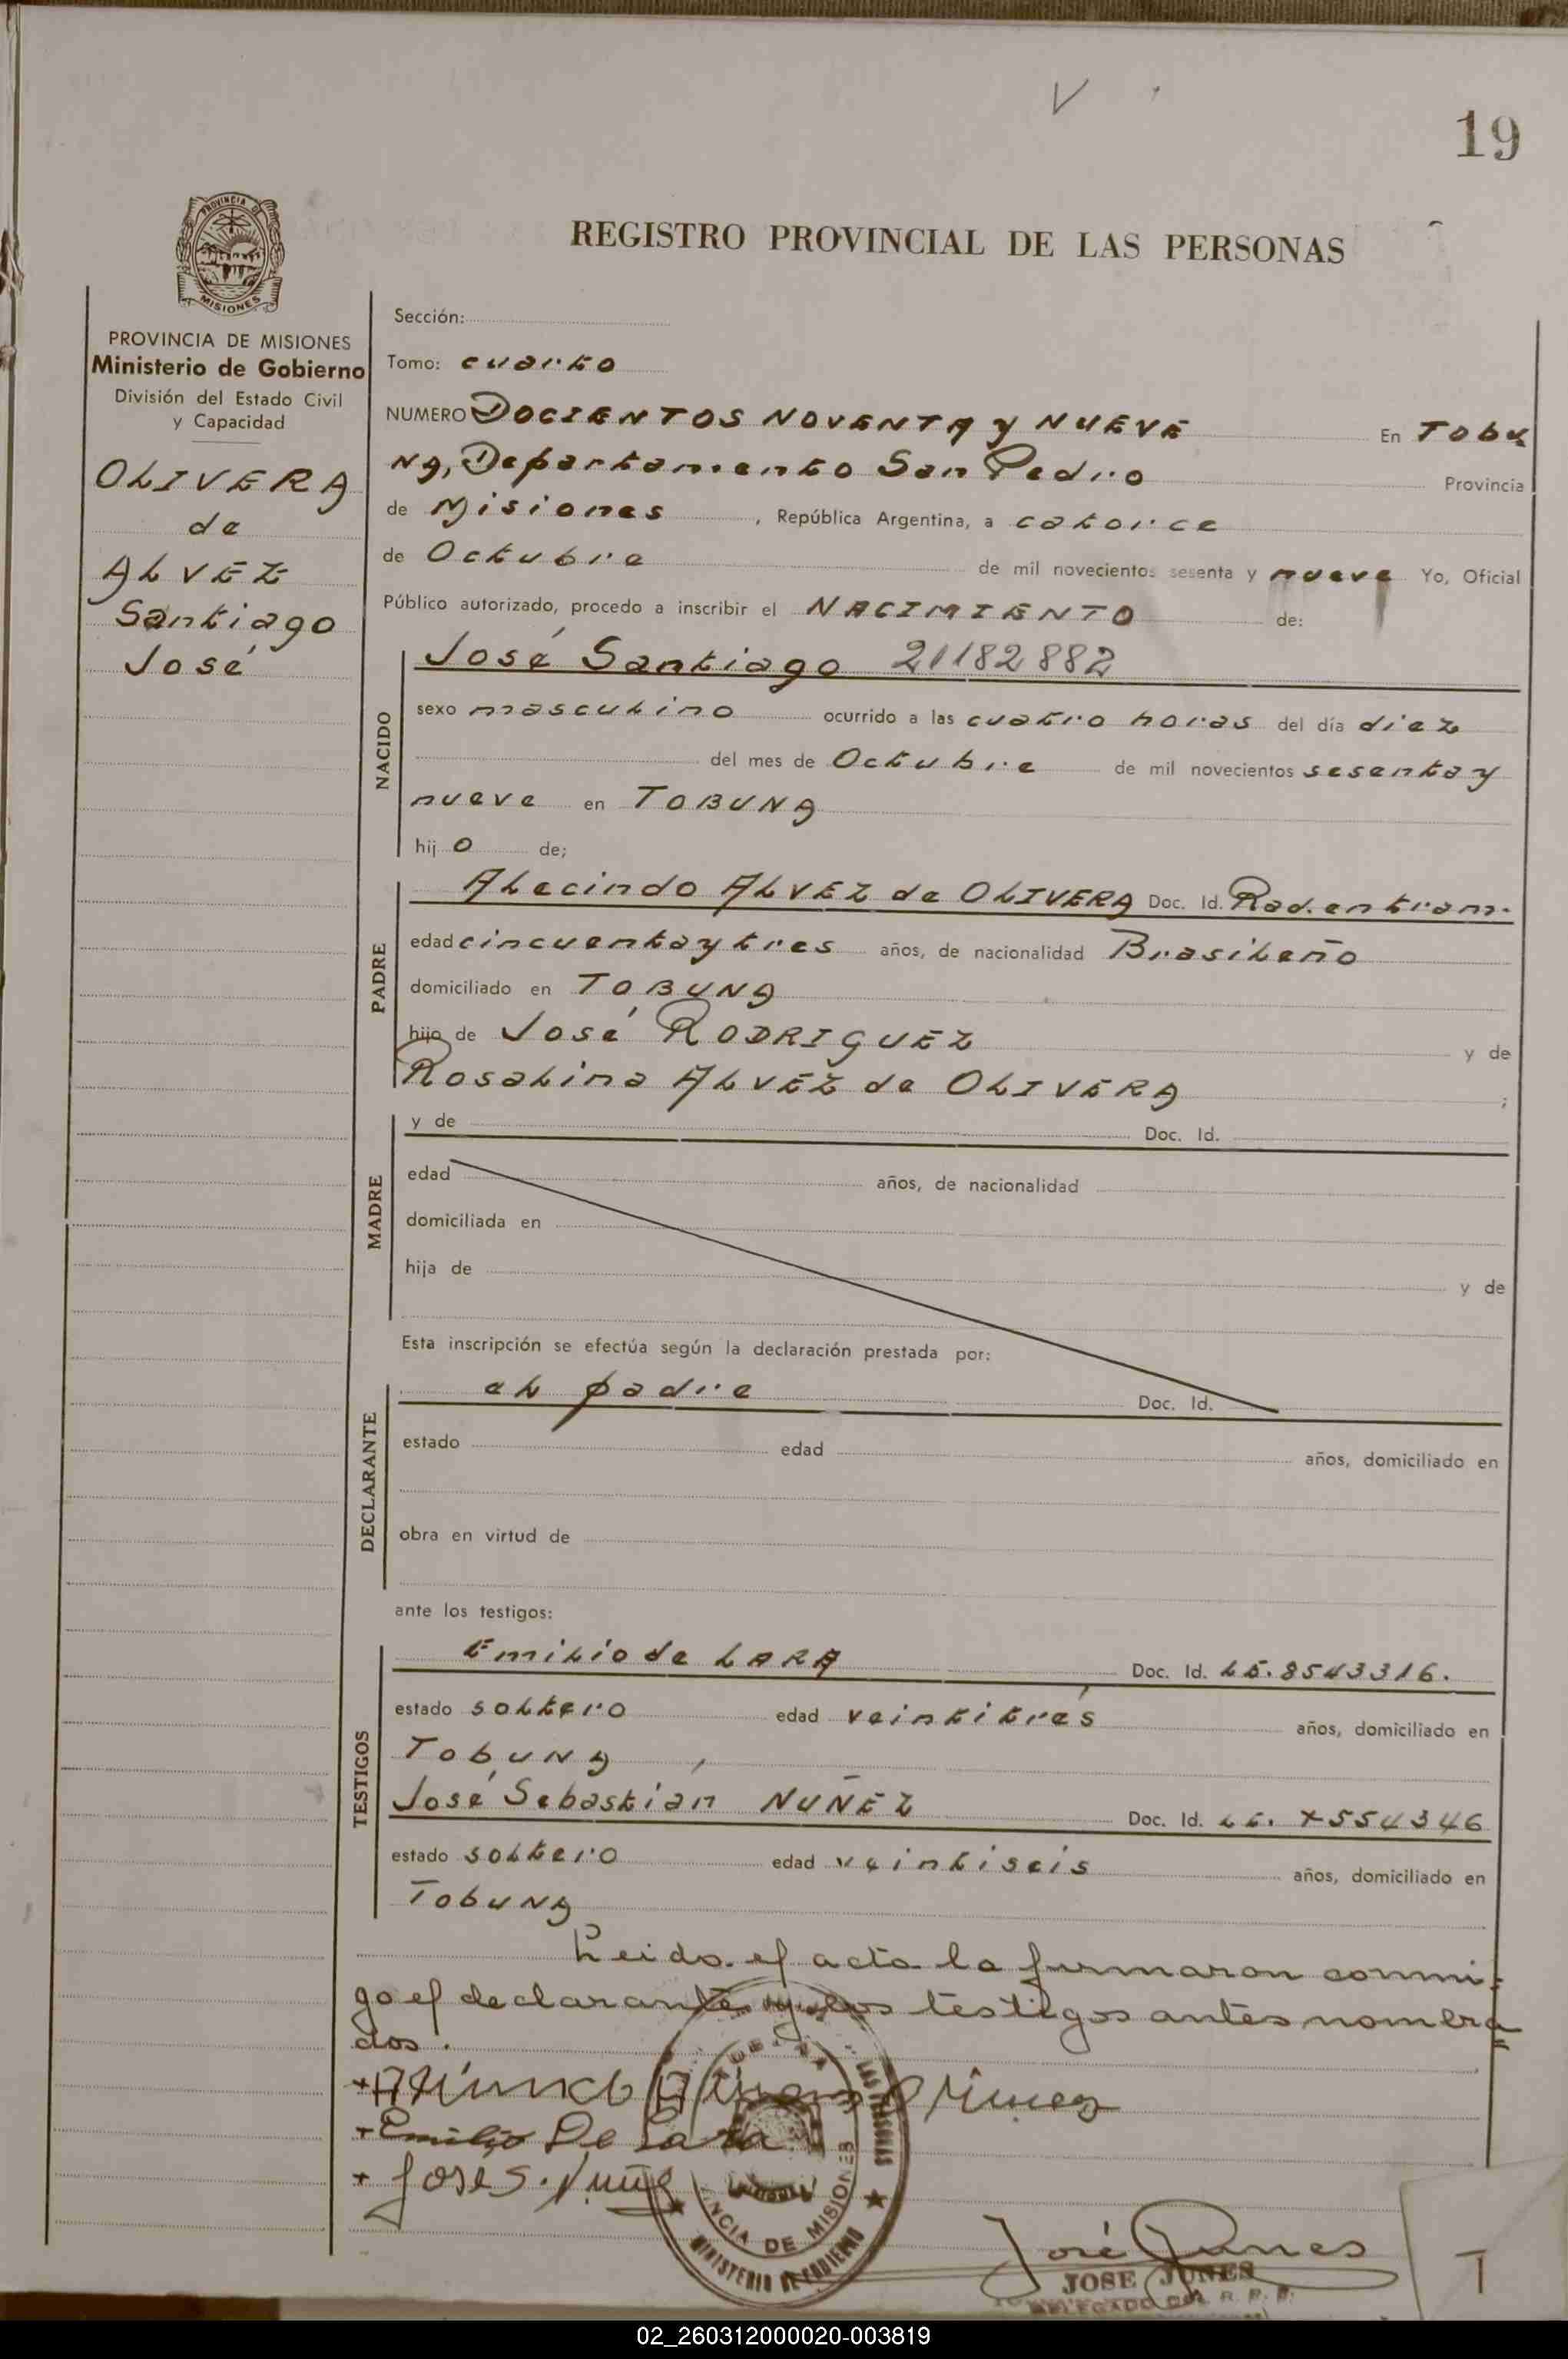 19
REGISTRO PROVINCIAL DE LAS PERSONAS
PROVINCIA DE
MISIONES
PROVINCIA DE MISIONES
Ministerio de Gobierno
División del Estado Civil
y Capacidad
OLIVERA
de
ALVEZ
Santiago
José
Sección:
Tomo: cuarto
NUMERO DOCIENTOS NOVENTA y NUEVE En TOBU
NA, Departamento San Pedro Provincia
de Misiones, República Argentina, a catorce
de Octubre de mil novecientos sesenta y nueve Yo, Oficial
Público autorizado, procedo a inscribir el NACIMIENTO de:
NACIDO
José Santiago 21182882
sexo masculino ocurrido a las cuatro horas del día diez
del mes de Octubre de mil novecientos sesenta y
nueve en TOBUNA
hijo de;
PADRE
Alecindo ALVEZ de OLIVERA Doc. Id. Rad. en tram.
edad cincuenta y tres años, de nacionalidad Brasileño
domiciliado en TOBUNA
hijo de José RODRIGUEZ y de
Rosalina ALVEZ de OLIVERA ;
MADRE
y de Doc. Id.
edad años, de nacionalidad
domiciliada en
hija de y de
Esta inscripción se efectúa según la declaración prestada por:
DECLARANTE
el padre Doc. Id.
estado edad años, domiciliado en
obra en virtud de
ante los testigos:
TESTIGOS
Emilio de LARA Doc. Id. LE. 8543316.
estado soltero edad veintitrés años, domiciliado en
TobUNA,
José Sebastián NUÑEZ Doc. Id. LE. 7554346
estado soltero edad veintiseis años, domiciliado en
TobUNA
Leido el acta la firmaron conmi-
go el declarante y los testigos antes nombra
dos.
+ Emilio De Lara
+ José S. Nuñe
LAS PERSONAS
PROVINCIA DE MISIONES
MINISTERIO DE GOBIERNO
José Junes
JOSE JUNES
DELEGADO DEL R. P. P.
02_260312000020-003819